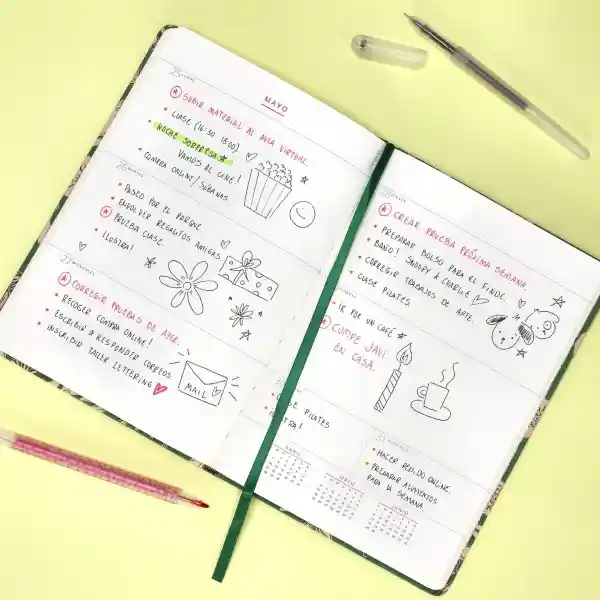 MAYO
25
SUBIR MATERIAL AL AULA VIRTUAL.
• CLASE (16:30 18:00)
• NOCHE SORPRESA
VAMOS AL CINE!
• COMPRA ONLINE/SÁBANAS
26 MARTES
• PASEO POR EL PARQUE
• ENVOLVER REGALITOS AMIGAS
PRUEBA CLASE.
• ILUSTRA!
27 MIÉRCOLES
CORREGIR PRUEBAS DE AYER.
• RECOGER COMPRA ONLINE!
• ESCRIBIR O RESPONDER CORREOS
• INSCRIBIR TALLER LETTERING
MAIL
28
CREAR PRUEBA PRÓXIMA SEMANA.
• PREPARAR BOLSO PARA EL FINDE.
• BAÑO! SNOOPY & CHARLIE
• CORREGIR TRABAJOS DE ARTE.
• CLASE PILATES
• IR POR UN CAFÉ
CUMPE JAVI
EN CASA.
PILATES
31 DOMINGO
• HACER PEDIDO ONLINE.
• PREPARAR ALIMENTOS
PARA LA SEMANA.
ABRIL
MAYO
JUNIO